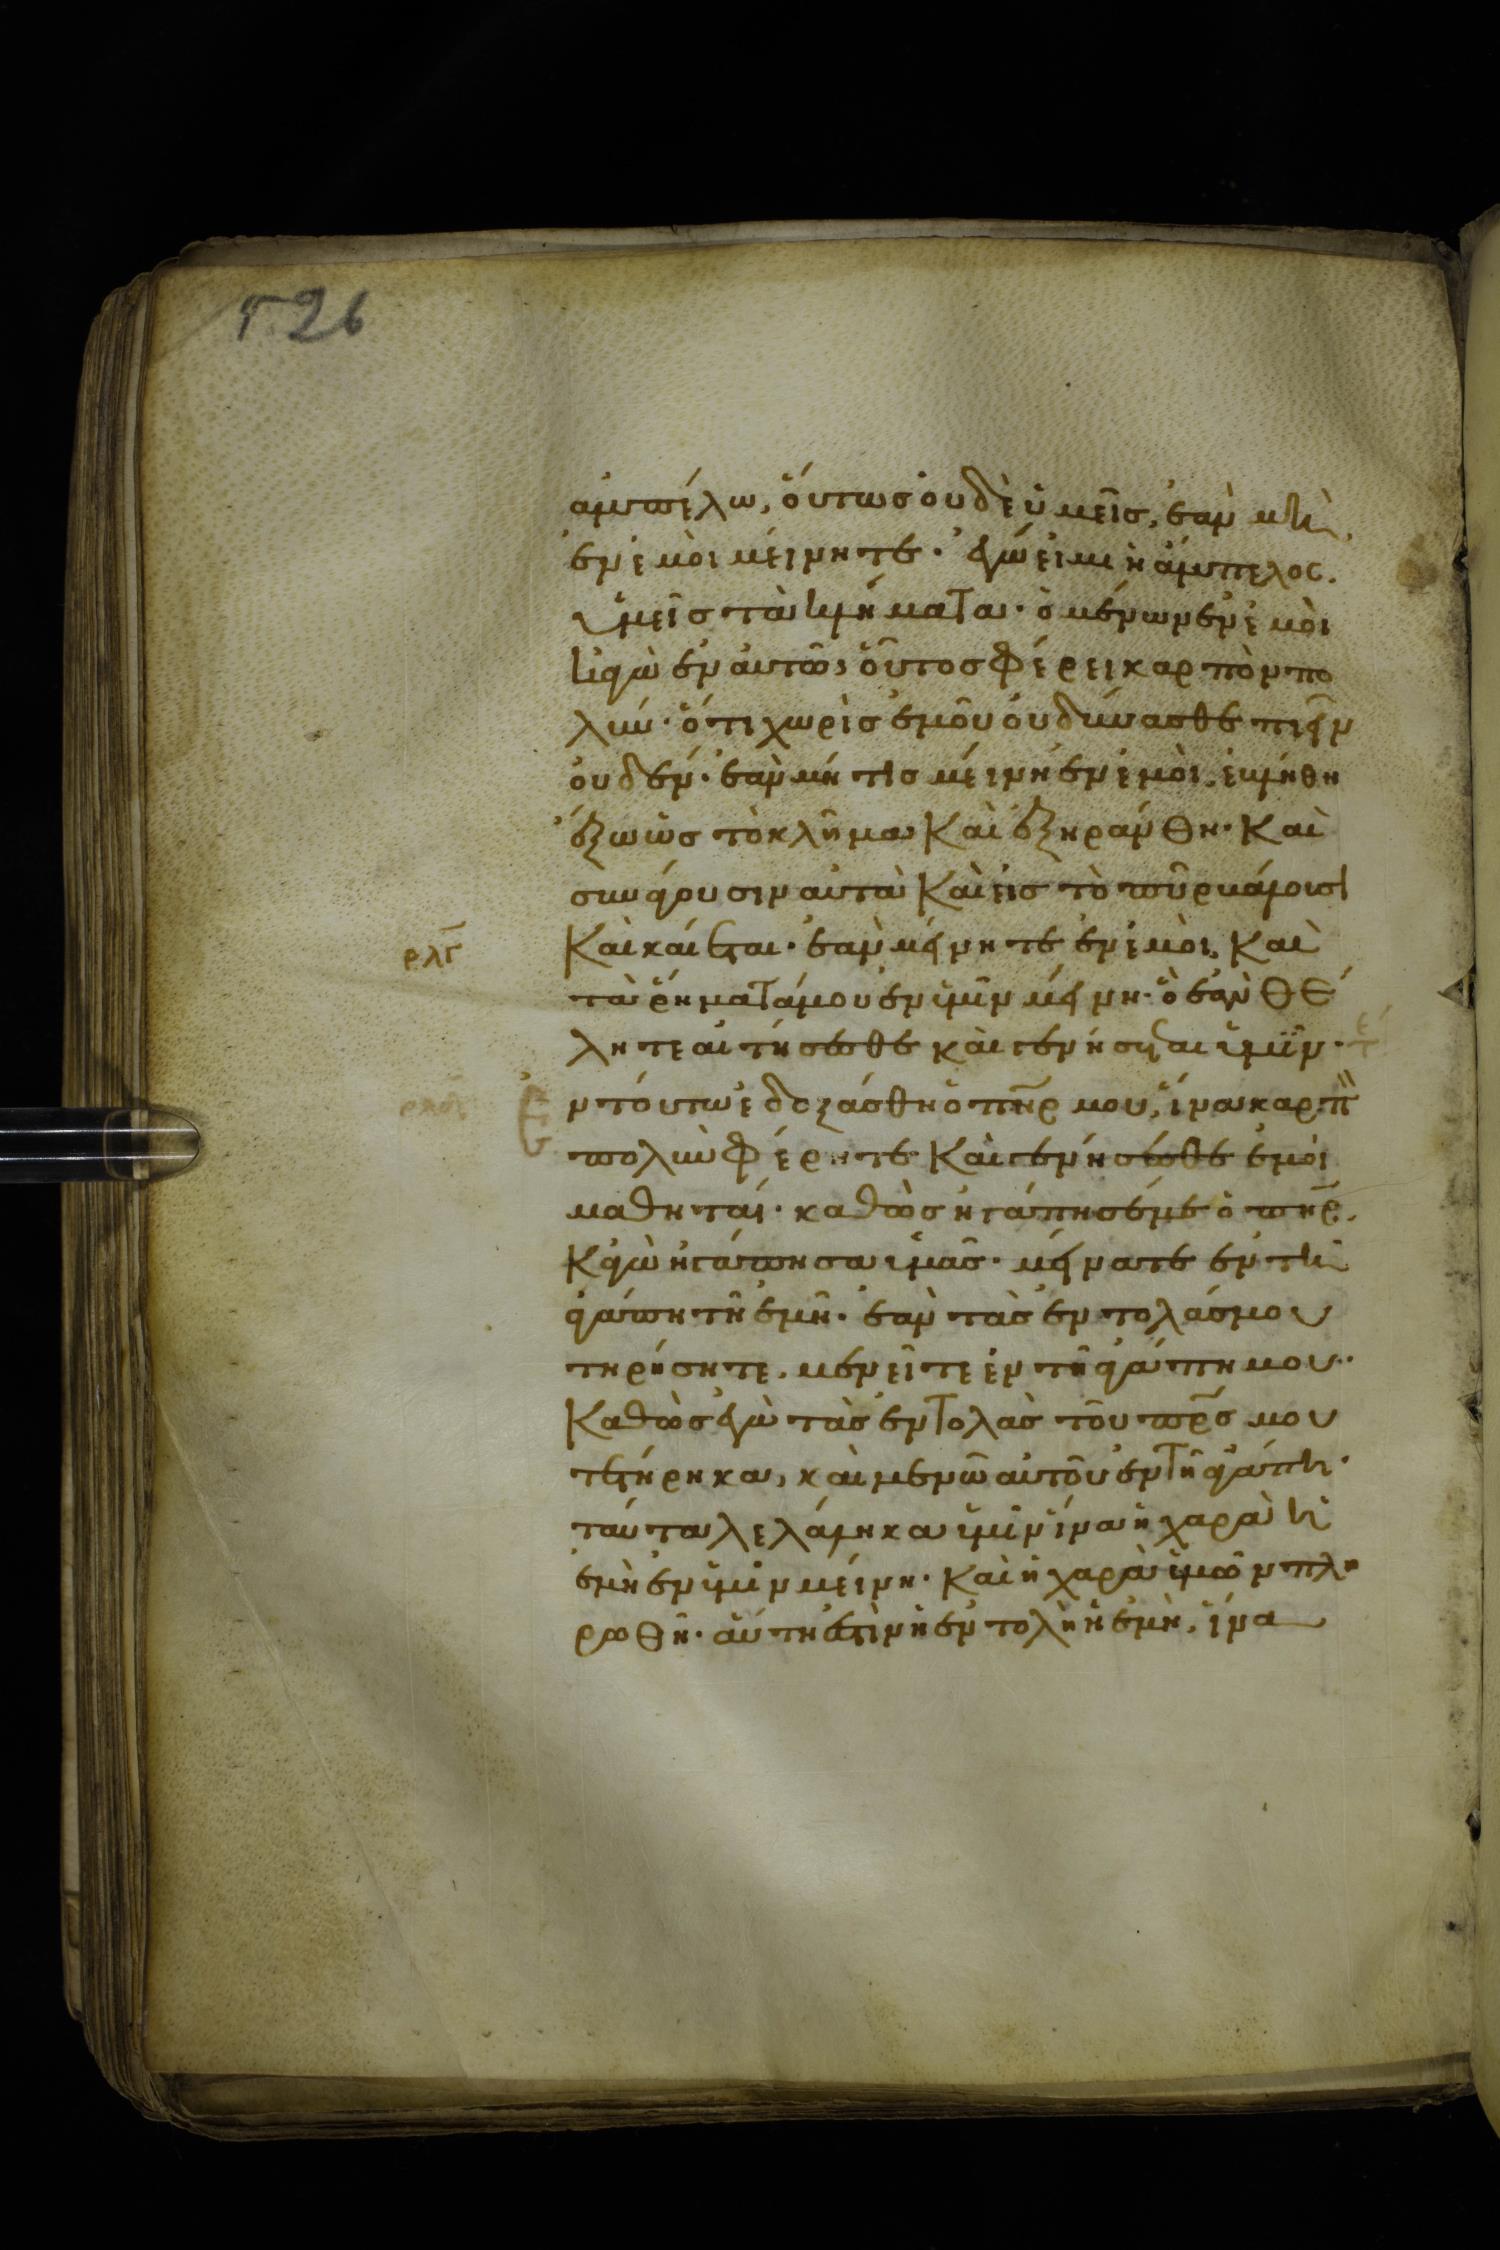 526
ἀμπέλω, ὅυτωσ ὀυδὲ ὑμεῖσ, ἐὰν μὴ
ἐν ἐμὸι μείνητε· ἐγώ εἰμι ἡ ἄμπελος.
ὑμεῖσ τὰ κλήματα· ὁ μένων ἐν ἐμὸι
κἀγὼ ἐν ἀυτῶ, ὅυτοσ φέρει καρπὸν πο
λύν· ὅτι χωρὶσ ἐμοῦ ὀυ δύνασθε ποιεῖν
ὀυδέν· ἐὰν μή τισ μείνη ἐν ἐμὸι, ἐβλήθη
ἔξω ὡσ τὸ κλῆμα καὶ ἐξηράνθη· καὶ
συνάγουσιν αὐτὰ καὶ εἰσ τὸ πῦρ βάλλουσι
ρλγ
καὶ καίεται· ἐὰν μείνητε ἐν ἐμὸι, καὶ
τὰ ῥήματά μου ἐν ὑμῖν μείνη· ὃ ἐὰν θέ
λητε αἰτήσεσθε καὶ γενήσεται ὑμῖν·
Ἐν τούτω ἐδοξάσθη ὁ πηρ μου, ἵνα καρπ
πολὺν φέρητε καὶ γενήσεσθε ἐμοὶ
μαθηταί· καθὼσ ἠγάπησέ με ὁ πηρ,
κἀγὼ ἠγάπησα ὑμᾶσ· μείνατε ἐν τῆ
ἀγάπη τῆ ἐμῆ· ἐὰν τὰσ ἐντολάσ μου
τηρήσητε, μενεῖτε ἐν τῆ ἀγάπη μου·
καθὼσ ἐγὼ τὰσ ἐντολὰσ τοῦ πρσ μου
τετήρηκα, καὶ μενῶ αὐτοῦ ἐν τῆ ἀγάπη·
ταύτα λελάληκα ὑμῖν ἵνα ἡ χαρὰ ἡ
ἐμὴ ἐν ὑμῖν μείνη· καὶ ἡ χαρὰ ὑμῶν πλη
ρωθῆ· αὕτη ἐστὶν ἡ ἐντολὴ ἡ ἐμὴ, ἵνα